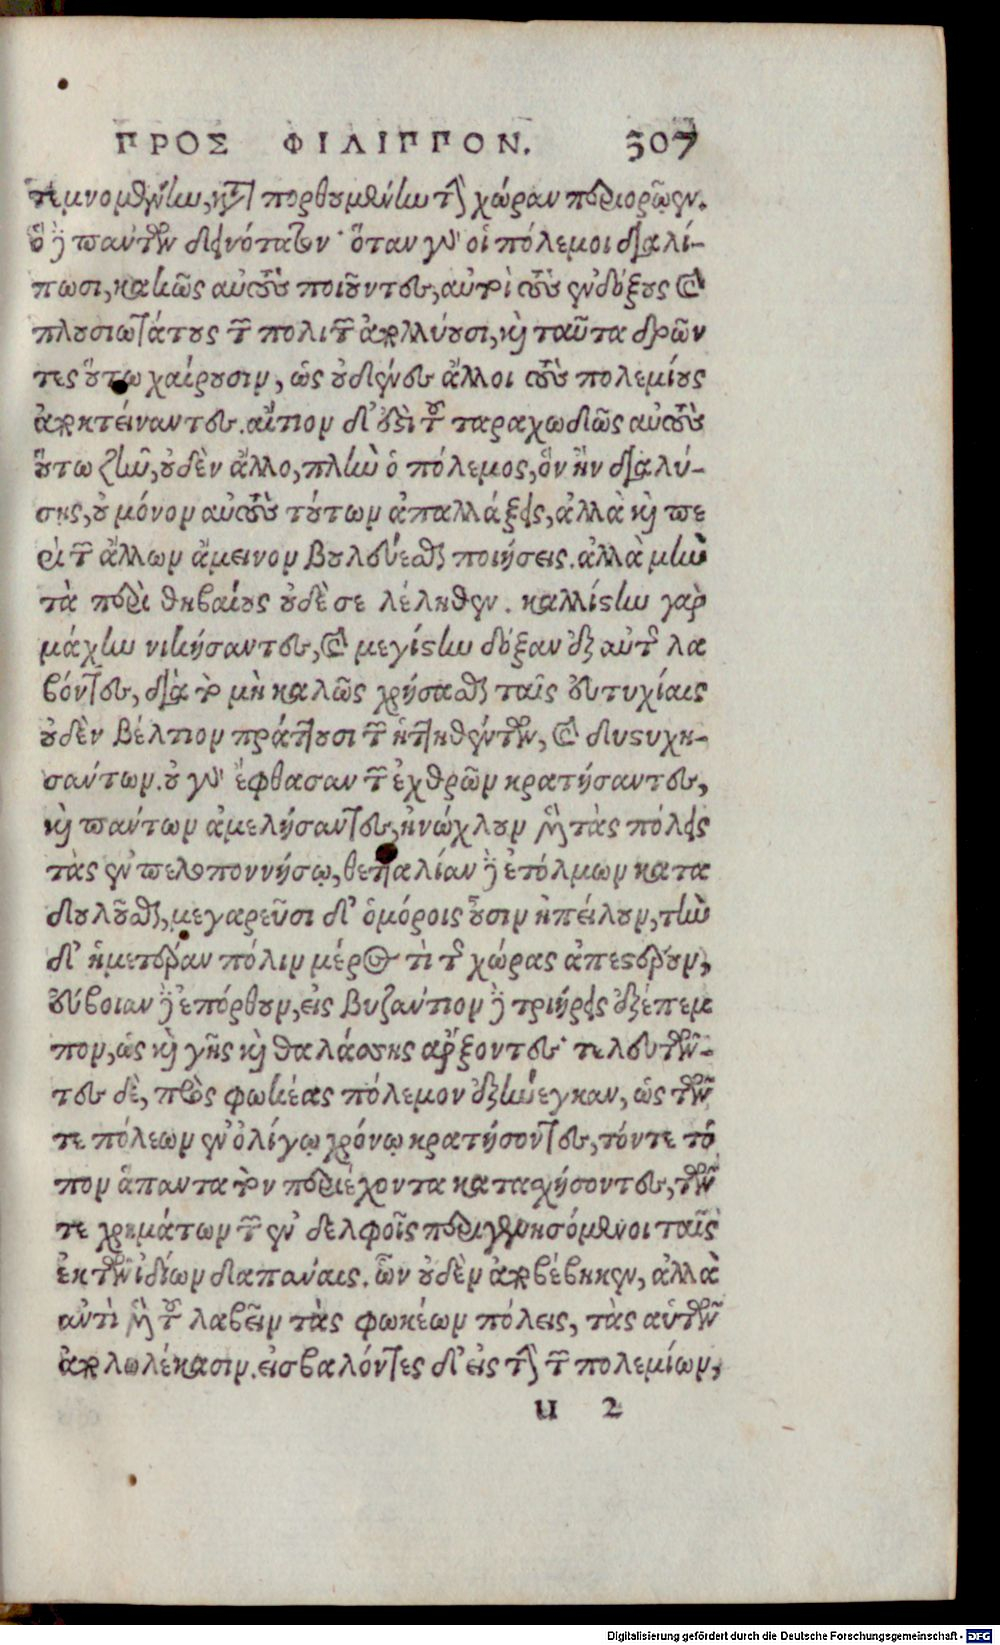 ΠΡΟΣ ΦΙΛΙΠΠΟΝ. 307
τεμνομένην, καὶ πορθουμένην τὴν χώραν περιορῶσιν.
ὃ δὲ πάντων δεινότατον· ὅταν γὰρ οἱ πόλεμοι διαλί-
πωσι, κακῶς αὐτοὺς ποιοῦντες, αὐτοὶ τοὺς ἐνδόξους καὶ
πλουσιωτάτους τῶν πολιτῶν ἀπολλύουσι, καὶ ταῦτα δρῶν
τες οὕτω χαίρουσιν, ὡς οὐδένες ἄλλοι τοὺς πολεμίους
ἀποκτείναντες. αἴτιον δ' ἐστὶ τοῦ ταραχωδῶς αὐτοὺς
οὕτω ζῆν, οὐδὲν ἄλλο, πλὴν ὁ πόλεμος, ὃν ἢν διαλύ-
σῃς, οὐ μόνον αὐτοὺς τούτων ἀπαλλάξεις, ἀλλὰ καὶ πε
ρὶ τῶν ἄλλων ἄμεινον βουλεύεσθαι ποιήσεις. ἀλλὰ μὴν
τὰ περὶ θηβαίους οὐδὲ σε λέληθεν. καλλίστην γὰρ
μάχην νικήσαντες, καὶ μεγίστην δόξαν ἐξ αὐτῆς λα
βόντες, διὰ τὸ μὴ καλῶς χρῆσθαι ταῖς εὐτυχίαις
οὐδὲν βέλτιον πράττουσι τῶν ἡττηθέντων, καὶ δυστυχη-
σάντων. οὐ γὰρ ἔφθασαν τῶν ἐχθρῶν κρατήσαντες,
καὶ πάντων ἀμελήσαντες, ἠνώχλουν μὲν τὰς πόλεις
τὰς ἐν πελοποννήσῳ, θετταλίαν δὲ ἐτόλμων κατα
δουλοῦσθαι, μεγαρεῦσι δ' ὁμόροις οὖσιν ἠπείλουν, τὴν
δ' ἡμετέραν πόλιν μέρος τὶ τῆς χώρας ἀπεστέρουν,
εὔβοιαν δὲ ἐπόρθουν, εἰς βυζάντιον δὲ τριήρεις ἐξέπεμ
πον, ὡς καὶ γῆς καὶ θαλάσσης ἄρξοντες· τελευτῶν-
τες δὲ, πρὸς φωκέας πόλεμον ἐξήνεγκαν, ὡς τῶν
τε πόλεων ἐν ὀλίγῳ χρόνῳ κρατήσοντες, τόν τε τό
πον ἅπαντα τὸν περιέχοντα κατασχήσοντες, τῶν
τε χρημάτων τῶν ἐν δελφοῖς περιγενησόμενοι ταῖς
ἐκ τῶν ἰδίων δαπάναις. ὧν οὐδὲν ἀποβέβηκεν, ἀλλὰ
ἀντὶ μὲν τοῦ λαβεῖν τὰς φωκέων πόλεις, τὰς αὑτῶν
ἀπολωλέκασιν. εἰσβαλόντες δ' εἰς τὴν τῶν πολεμίων,
u 2
Digitalisierung gefördert durch die Deutsche Forschungsgemeinschaft - DFG